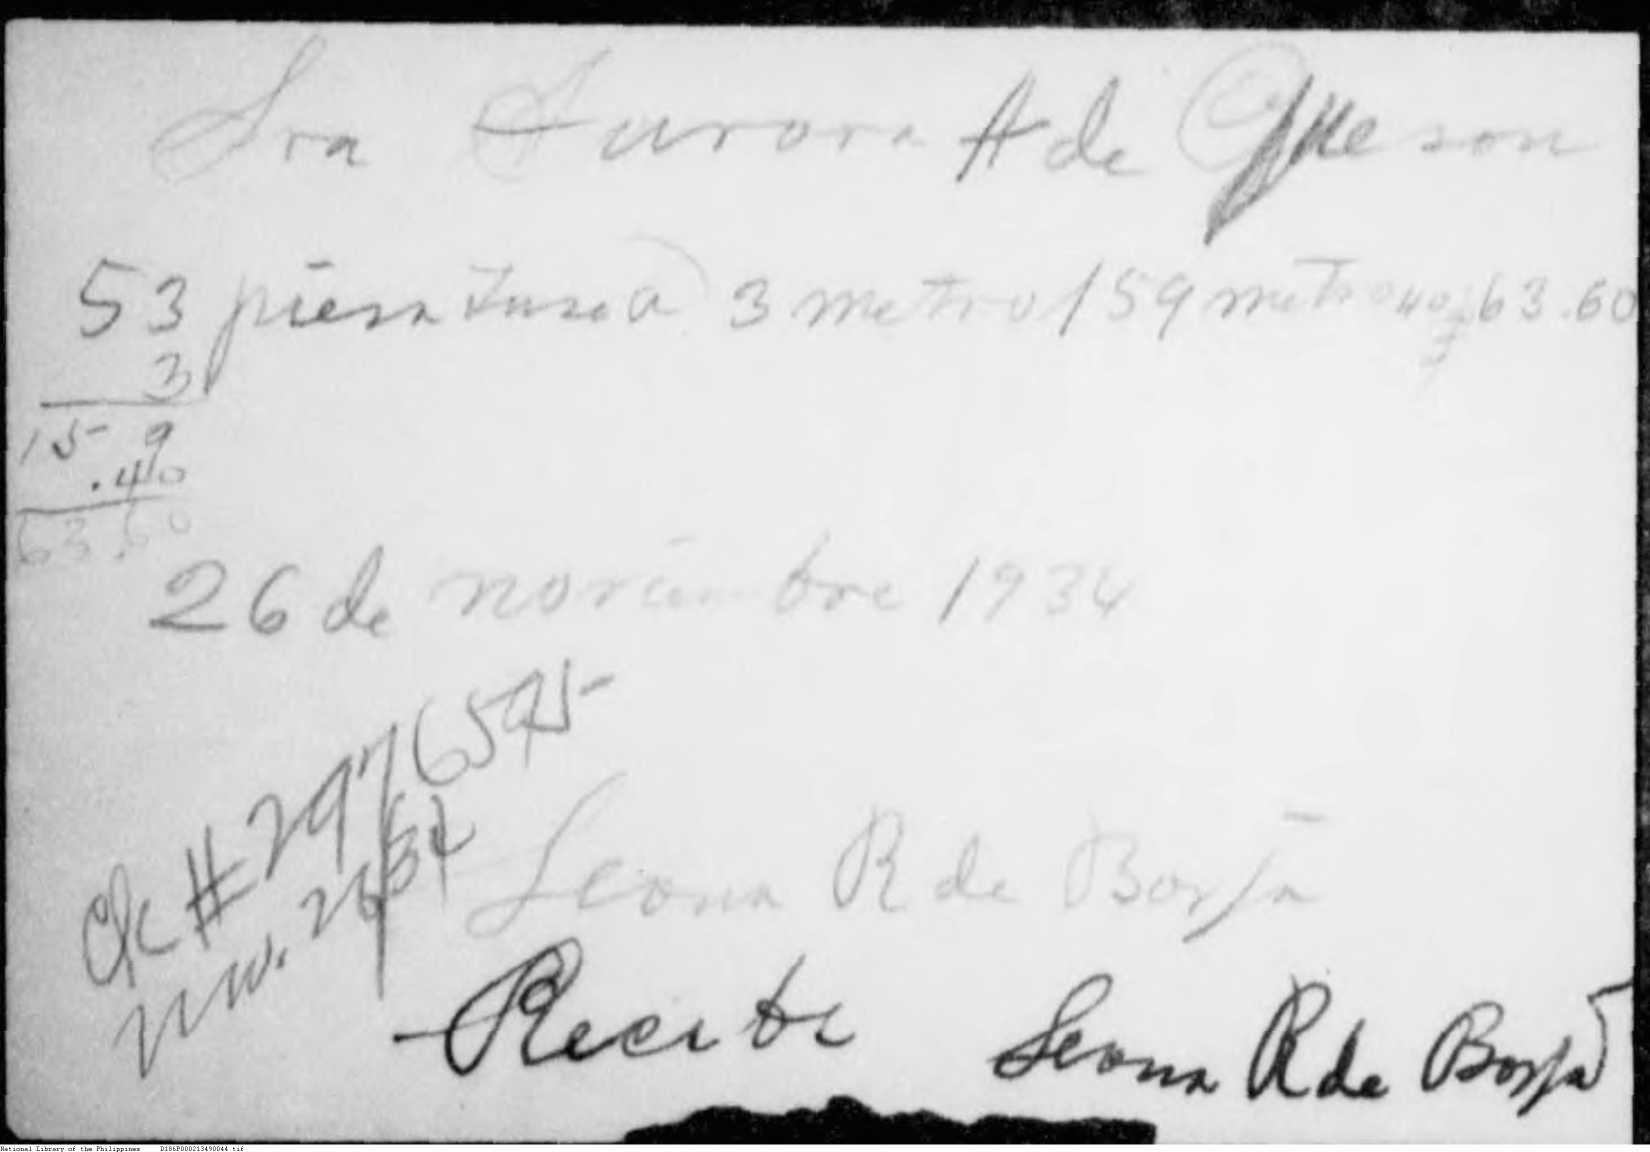 Sra Aurora A de Queson
53 piesa tusoa 3 metro 159 metro 40 63.60
3
159
.40
63.60
26 de noviembre 1934
Ck # 2976595
nov. 26/34
Leona R de Borja
Recibi Leona R de Borja
National Library of the Philippines D186P000213490044.tif